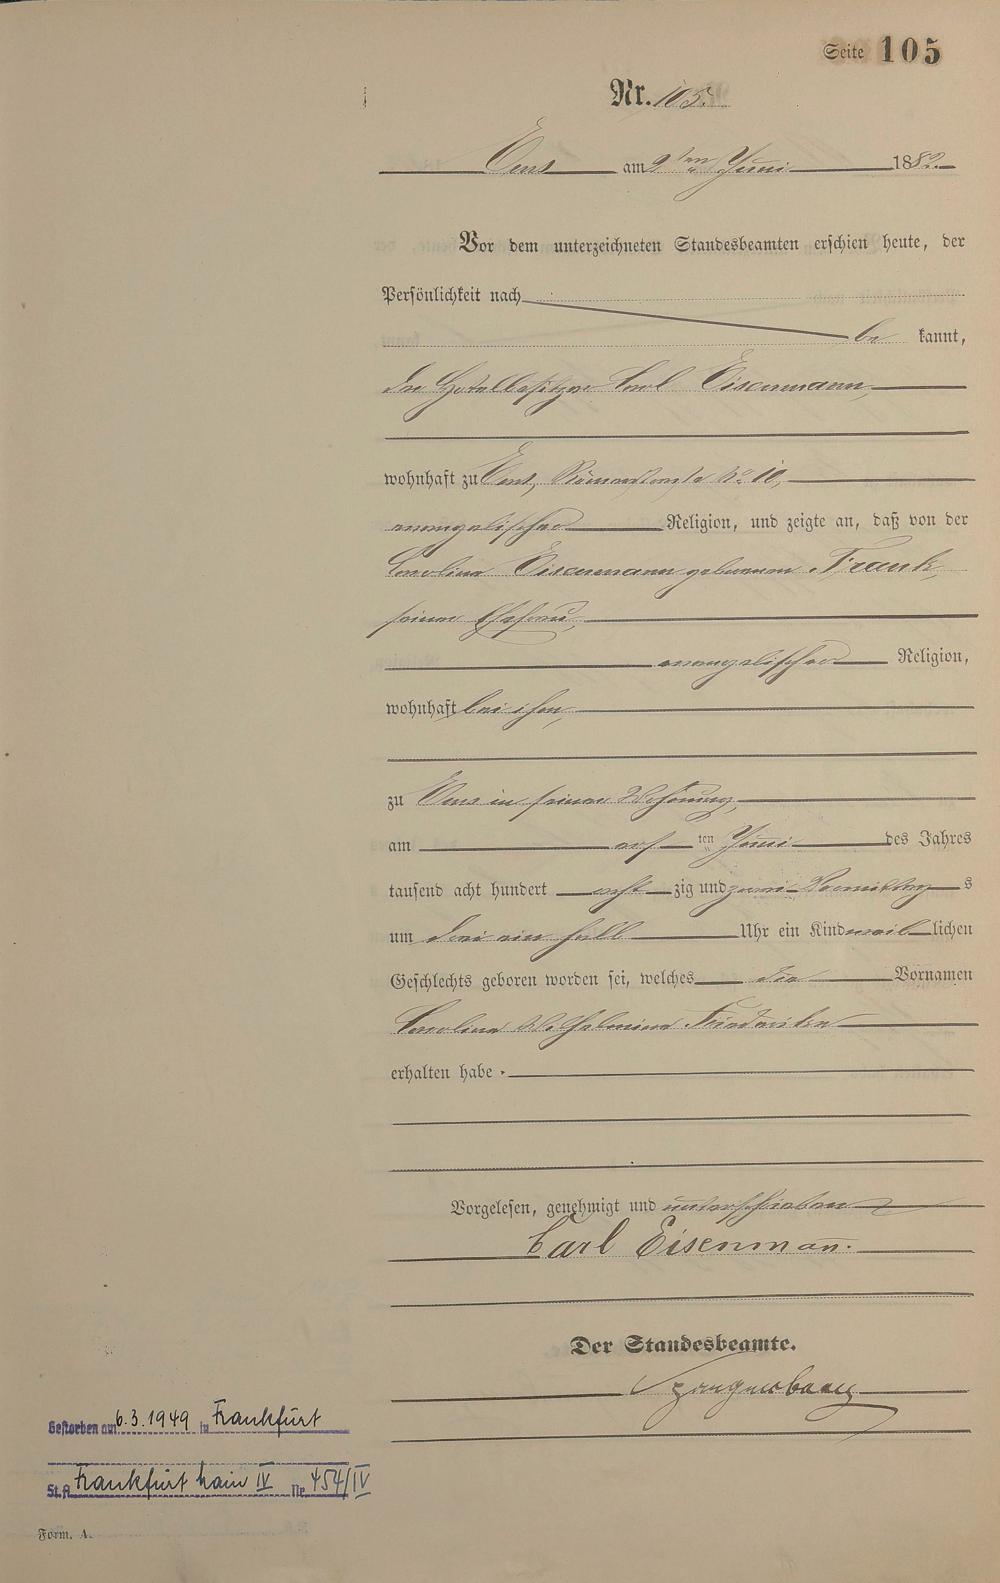 Seite 105
Nr. 105.
Ems am 9ten Juni 1882.
Vor dem unterzeichneten Standesbeamten erschien heute, der
Persönlichkeit nach
be kannt,
der Hotelbesitzer Carl Eisenmann,
wohnhaft zu Ems, Römerstraße No 10,
evangelischer Religion, und zeigte an, daß von der
Caroline Eisenmann geborenen Frank,
seiner Ehefrau,
evangelischer Religion,
wohnhaft bei ihm,
zu Ems in seiner Wohnung,
am ten Juni des Jahres
tausend acht hundert acht zig und zwei Vormittag s
um drei ein halb Uhr ein Kind weib lichen
Geschlechts geboren worden sei, welches die Vornamen
Caroline Wilhelmine Friederike
erhalten habe.
Vorgelesen, genehmigt und unterschrieben
Carl Eisenmann.
Der Standesbeamte.
Gestorben am 6.3.1949 in Frankfurt
St.A. Frankfurt Main IV Nr. 454/IV
Form. A.